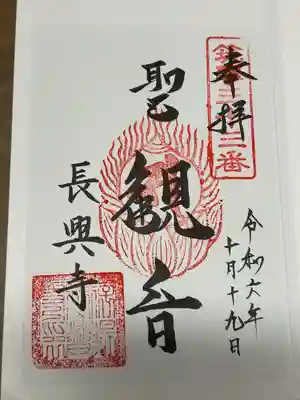 奉拝
令和六年
十月十九日
聖観音
長興寺